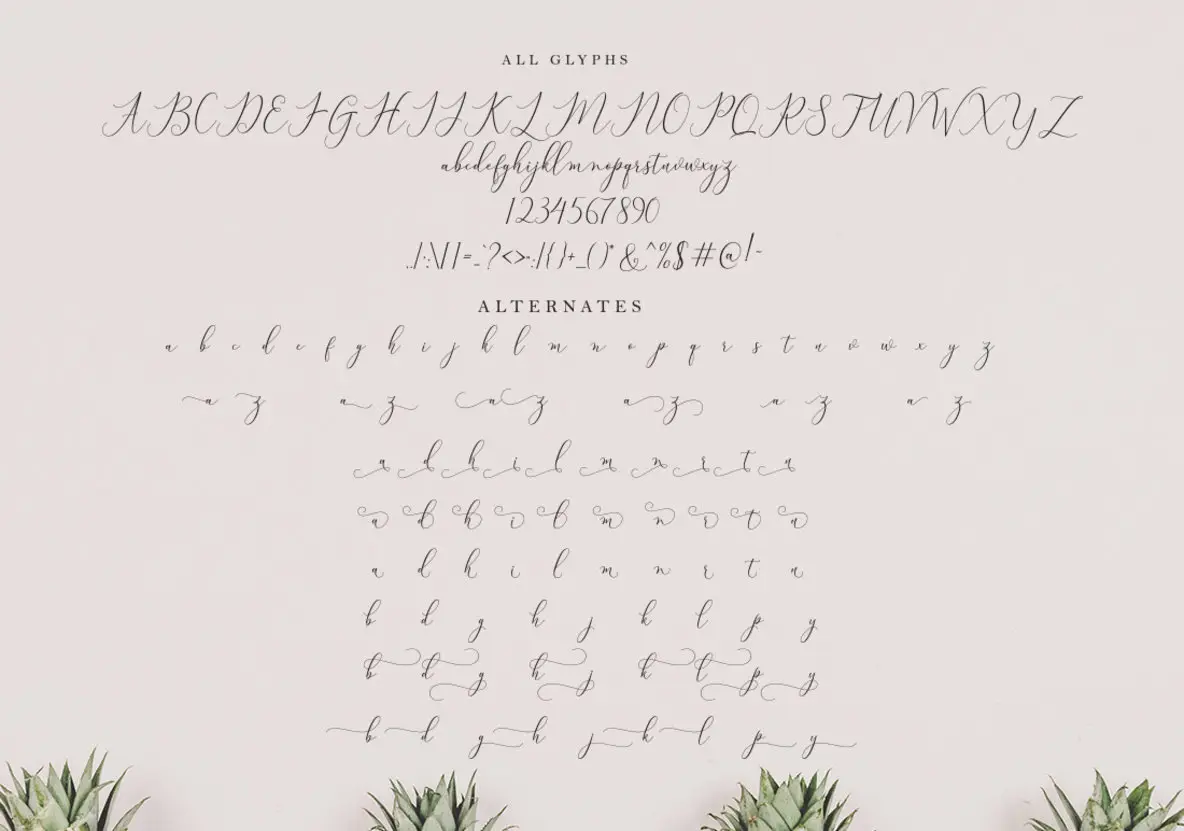 ALL GLYPHS
ABCDEFGHIJKLMNOPQRSTUVWXYZ
abcdefghijklmnopqrstuvwxyz
1234567890
.,/;:\[]|=-`?<>:;/{}+_()*&^%$#@!~
ALTERNATES
a b c d e f g h i j k l m n o p q r s t u v w x y z
a z a z a z a z a z a z
a d h i l m n r t u
a d h i l m n r t u
a d h i l m n r t u
b d g h j k l p y
b d g h j k l p y
b d g h j k l p y